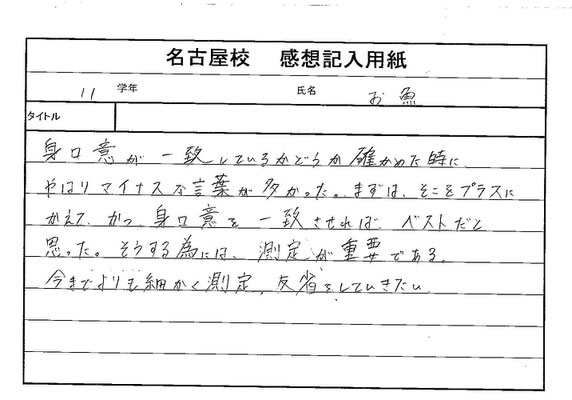 名古屋校 感想記入用紙
11 学年 氏名 お魚
タイトル
身口意が一致しているかどうか確かめた時に、
やはりマイナスな言葉が多かった。まずは、そこをプラスに
かえて、かつ、身口意を一致させれば、ベストだと
思った。そうする為には、測定が重要である。
今までよりも細かく測定、反省をしていきたい